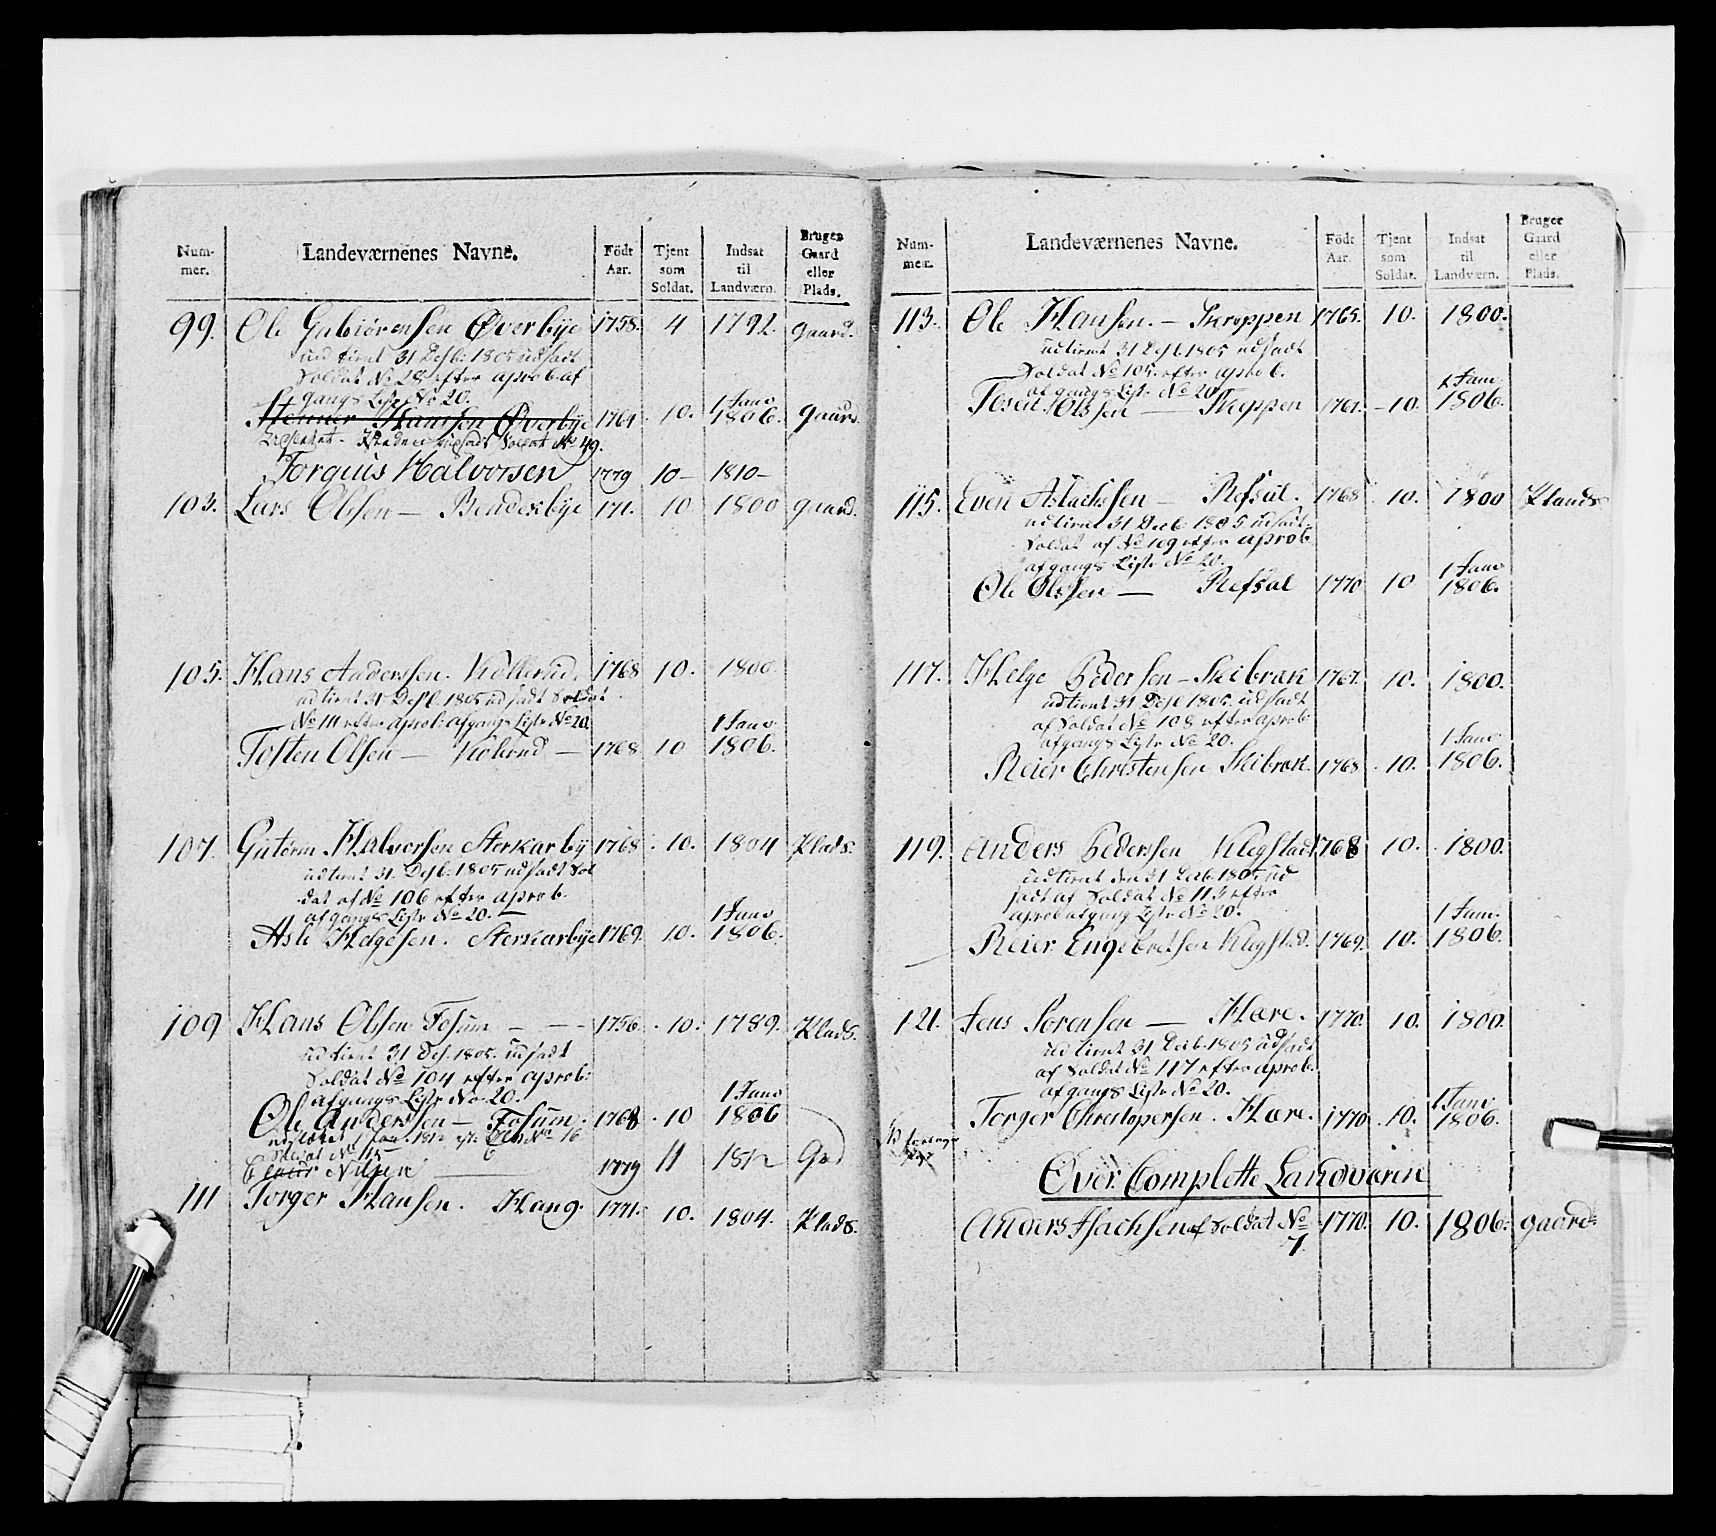 Num-
mer.
Landeværnenes Navne.
Födt
Aar.
Tjent
som
Soldat.
Indsat
til
Landværn.
Bruger
Gaard
eller
Plads.
99. Ole Gulbiörensen Øverbye 1758. 4 1792. gaard.
udtient 31 Desb: 1805 udsadt
Soldat No 28 efter aprob: af
gangs Liste No 20.
Stenner Hansen Øverbye 1764 10. 1 Janv 1806. gaard.
Soldat No 49.
Torgius Halvorsen 1779 10- 1810-
103. Lars Olssen - Benderbye 171. 10 1800 gaard.
105. Hans Anderssen. Kollerud. 1768 10. 1800.
udtient 31 Desb: 1805 udsadt Soldat
No 111 efter aprob: afgangs Liste No 20.
Tosten Olsen - Kolerud - 1768. 10 1 Janv 1806.
107. Gutorm Halvorsen Sterkarby 1768. 10. 1804 Plads.
udtient 31. Desb: 1805 udsadt Sol
dat af No 106 efter aprob.
afgangs Liste No 20. -
Asle Helgesen. Sterkarbye 1769. 10. 1 Janv 1806.
109 Hans Olssen Fosum - - - 1756. 10. 1789. Plads.
udtient 31 Des. 1805. udsadt
Soldat No 104 efter aprob:
afgangs Liste No. 20.
Ole Anderssen - Fosum. 1768. 10 1 Janv 1806
Soldat No 115
Nilsen 1779 11 1812 Grd
111 Torger Hansen. Haug. 1771. 10. 1804. Plads.
Num-
mer.
Landeværnenes Navne.
Födt
Aar.
Tjent
som
Soldat.
Indsat
til
Landværn.
Bruger
Gaard
eller
Plads.
113. Ole Hansen. - Skreppen 1765. 10. 1800.
udtient 31 Desb. 1805 udsadt
Soldat No 105. efter aprob.
afgangs Liste No 20.
Olssen - Skreppen 1761. 10. 1 Janv 1806.
115. Even Aslachssen - Refsal. 1768. 10. 1800 Plads
udtient 31 Deeb. 1805 udsadt
Soldat af No 109 efter aprob.
afgangs Liste No 20.
Ole Olssen - Refsal 1770 10 1 Janv 1806.
117. Helge Pedersen - Skibræk 1767. 10. 1800.
udtient 31 Desb 1805. udsadt
af Soldat No 108 efter aprob.
afgangs Liste No 20.
Reier Christensen Skibræk. 1768. 10. 1 Janv 1806.
119. Anders Pedersen Klegstad 1768 10. 1800.
udtient den 31 Deeb. 1805 ud
sadt af Soldat No 113 efter
aprob afgang Liste No 20.
Reier Engebretsen Klegstad. 1769. 10. 1 Janv. 1806.
121. Jens Sörensen - Hære. 1770. 10. 1800.
udtient 31 Deeb. 1805 udsadt
af Soldat No 117 efter aprob.
afgangs Liste No 20.
Torger Christopersen. Hære. 1770. 10. 1 Janv 1806.
Over Complette Landværn
Anders Isachsen af Soldat No 7. 1770. 10. 1806. gaard